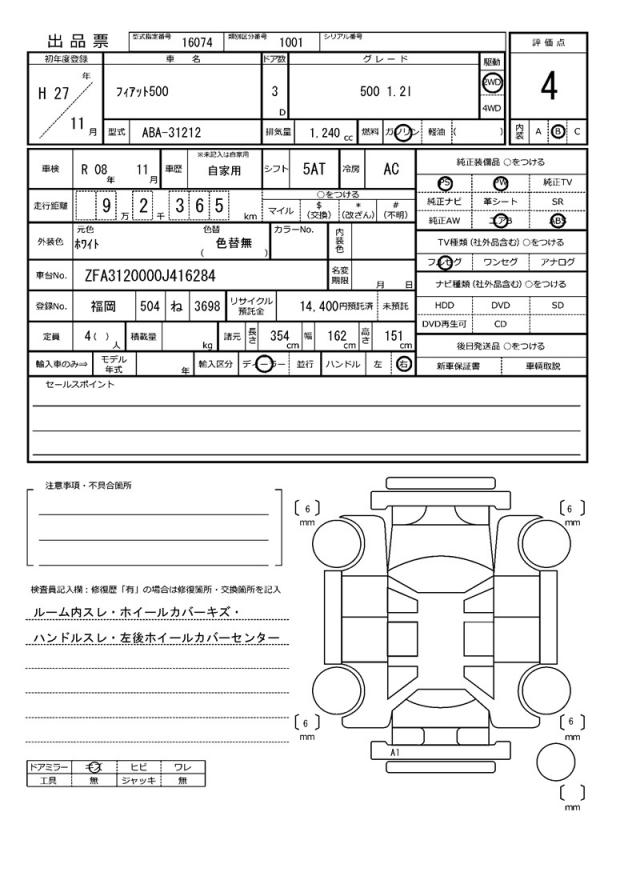 出品票 型式指定番号 16074 類別区分番号 1001 シリアル番号
評価点
4
内装 A B C
初年度登録 車名 ドア数 グレード 駆動
H 27 年 11 月 フィアット500 3 D 500 1.2l 2WD 4WD
型式 ABA-31212 排気量 1.240 cc 燃料 ガソリン 軽油 ( )
車検 R 08 年 11 月 車歴 ※未記入は自家用 自家用 シフト 5AT 冷房 AC
走行距離 9 万 2 千 3 6 5 km ○をつける マイル $(交換) *(改ざん) #(不明)
外装色 元色 ホワイト 色替 ( 色替無 ) カラーNo. 内装色
車台No. ZFA3120000J416284 名変期限 月 日
登録No. 福岡 504 ね 3698 リサイクル預託金 14,400円預託済 未預託
定員 4( ) 人 積載量 kg 諸元 長さ 354 cm 幅 162 cm 高さ 151 cm
輸入車のみ⇒ モデル年式 年 輸入区分 ディーラー 並行 ハンドル 左 右
純正装備品 ○をつける
PS PW 純正TV
純正ナビ 革シート SR
純正AW エアB ABS
TV種類(社外品含む)○をつける
フルセグ ワンセグ アナログ
ナビ種類(社外品含む)○をつける
HDD DVD SD
DVD再生可 CD
後日発送品 ○をつける
新車保証書 車輌取説
セールスポイント
注意事項・不具合箇所
検査員記入欄:修復歴「有」の場合は修復箇所・交換箇所を記入
ルーム内スレ・ホイールカバーキズ・
ハンドルスレ・左後ホイールカバーセンター
ドアミラー キズ ヒビ ワレ
工具 無 ジャッキ 無
6 mm
6 mm
6 mm
6 mm
A1
mm